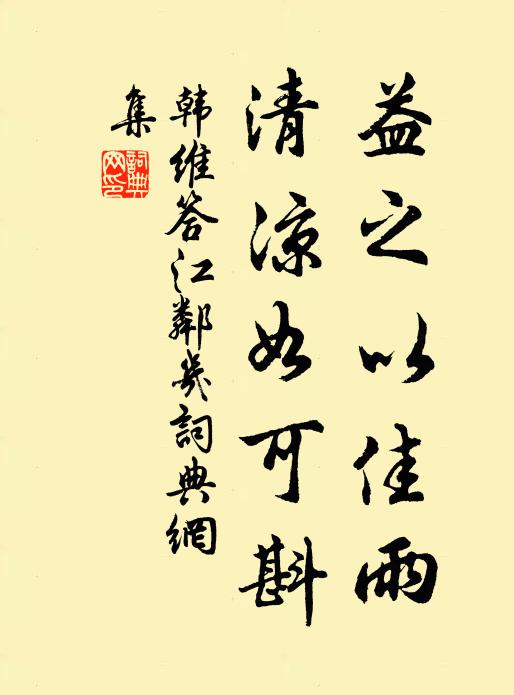 益之以佳雨
清凉如可斟
韩维答江鄰几詞典網
集
詞典
网印